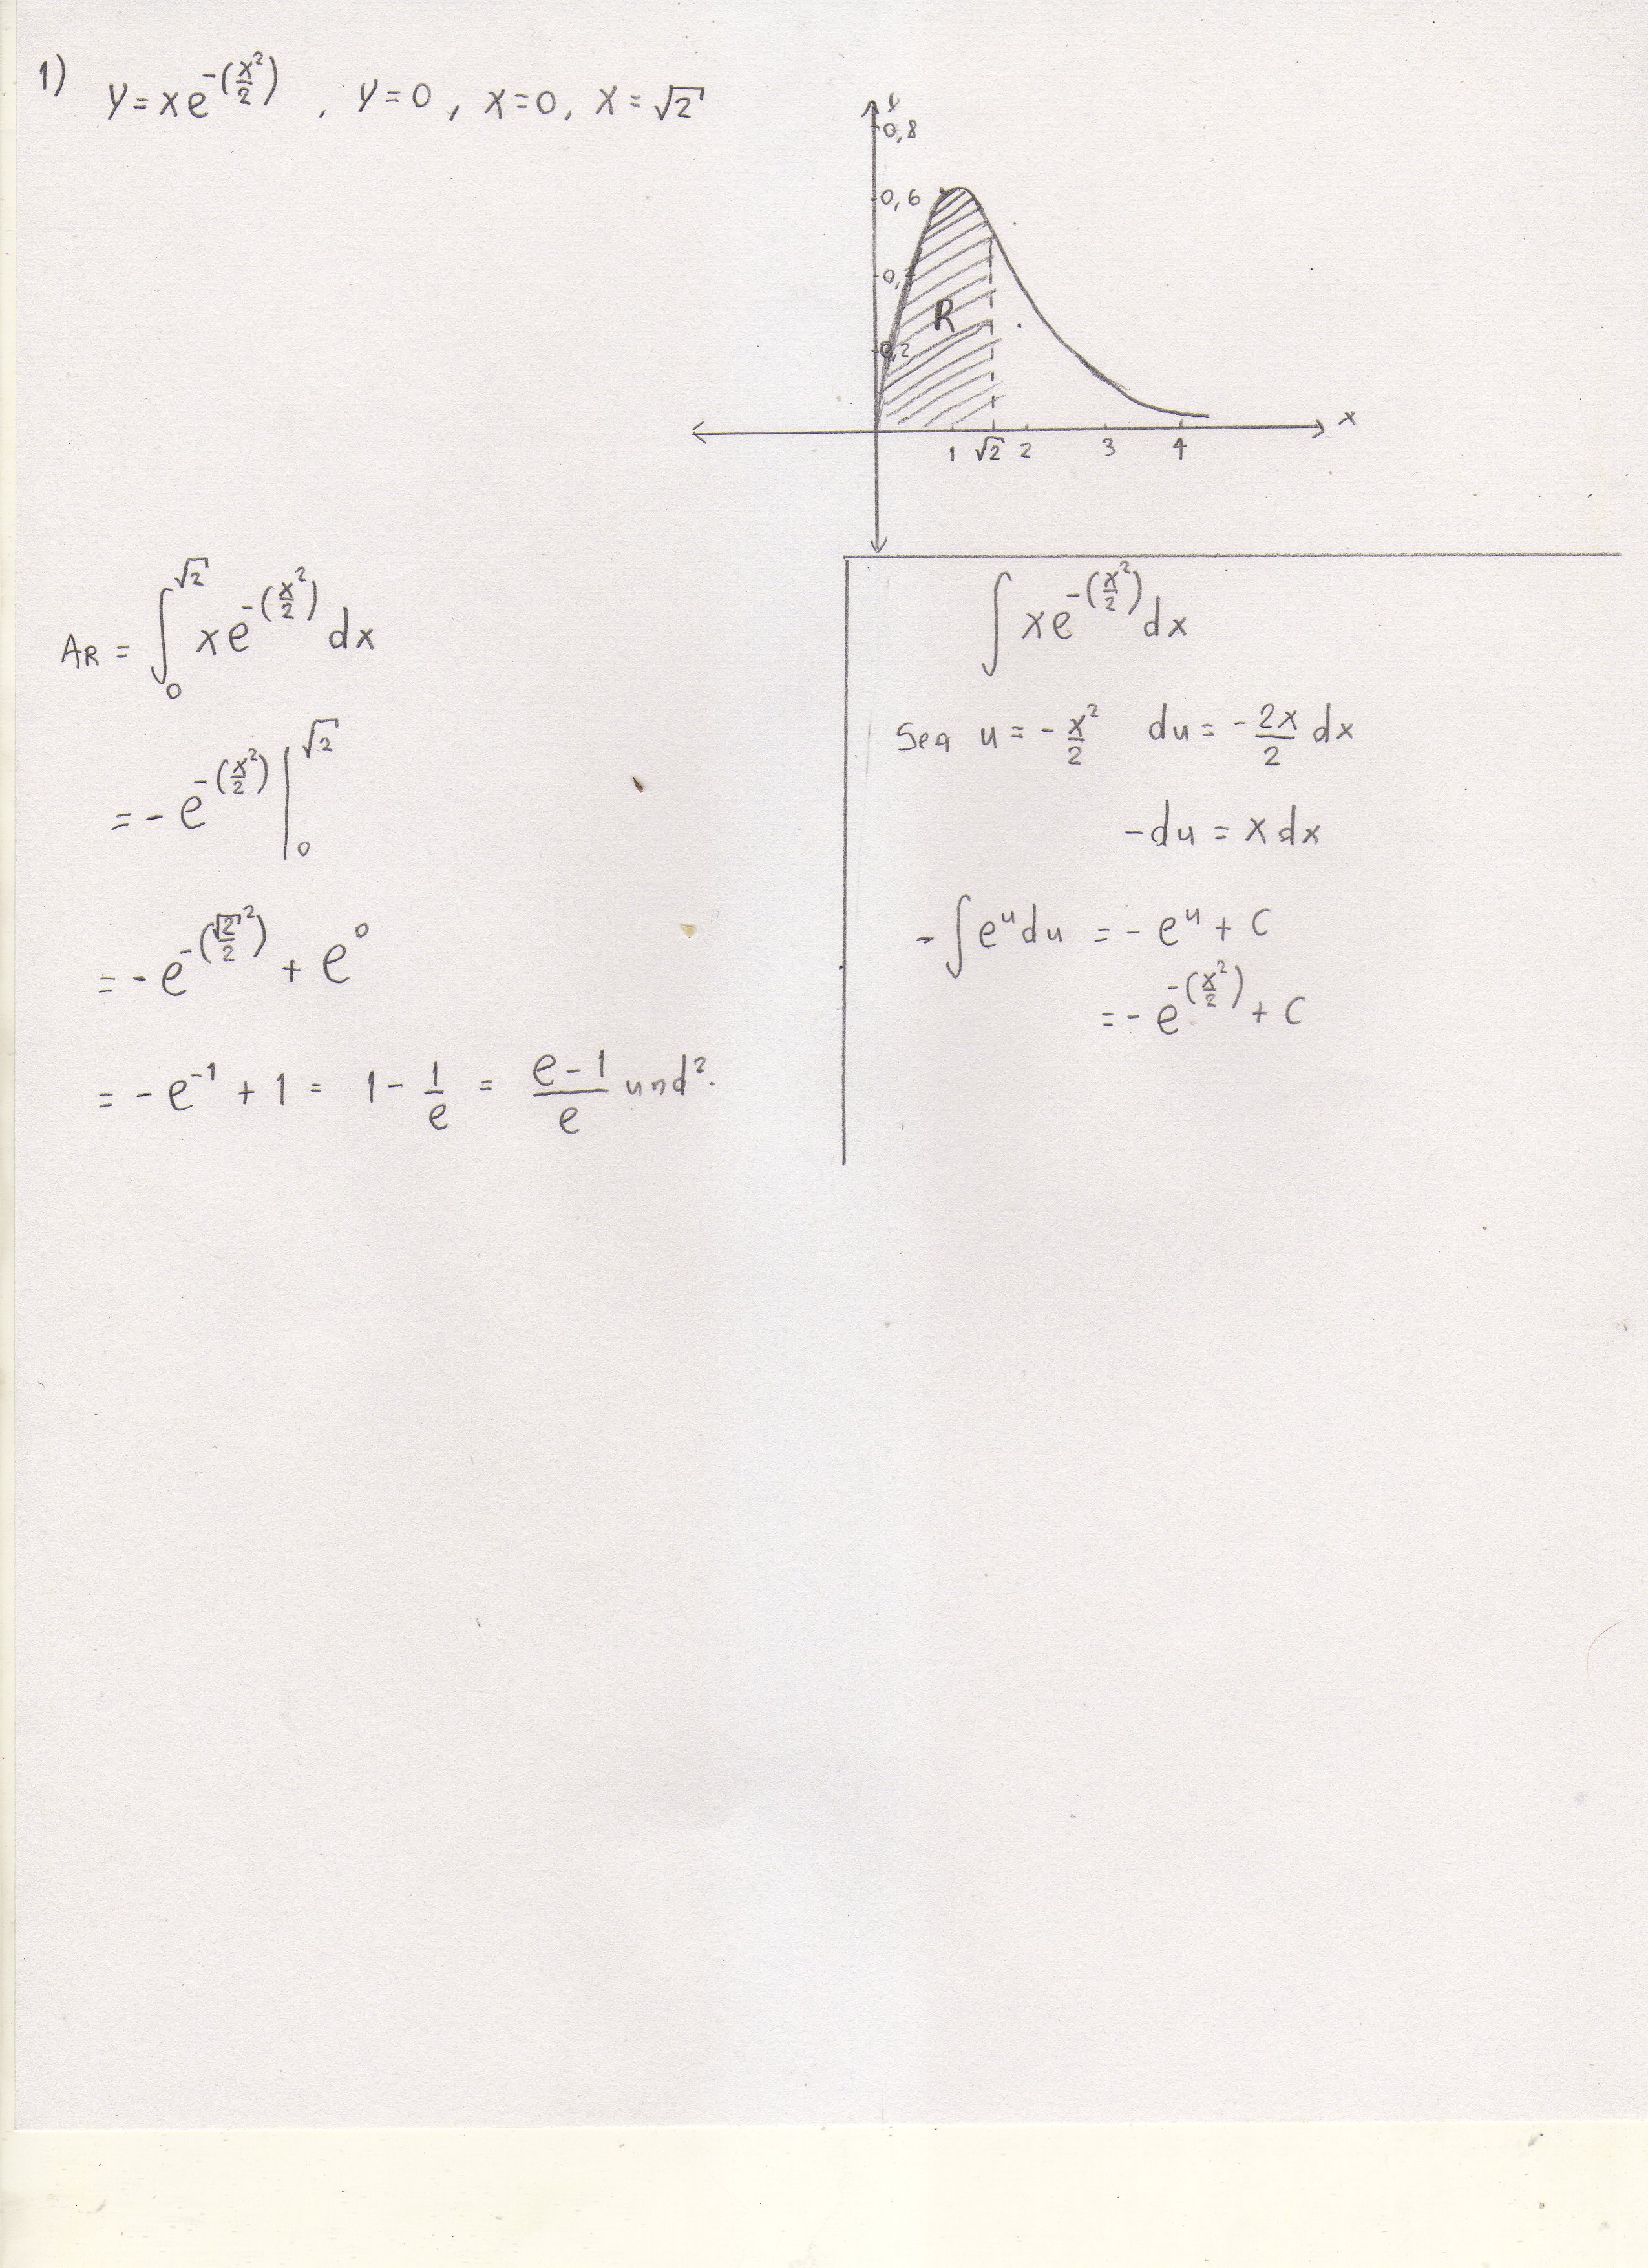 1) y = xe^{-(x²/2)} , y=0, x=0, x=√2
y
0,8
0,6
0,2
R
x
1 √2 2 3 4
A_R = ∫_0^{√2} xe^{-(x²/2)} dx
= -e^{-(x²/2)} |_0^{√2}
= -e^{-(√2²/2)} + e^0
= -e^{-1} + 1 = 1 - 1/e = (e-1)/e und².
∫ xe^{-(x²/2)} dx
Sea u = -x²/2 du = -2x/2 dx
-du = x dx
-∫ e^u du = -e^u + C
= -e^{-(x²/2)} + C